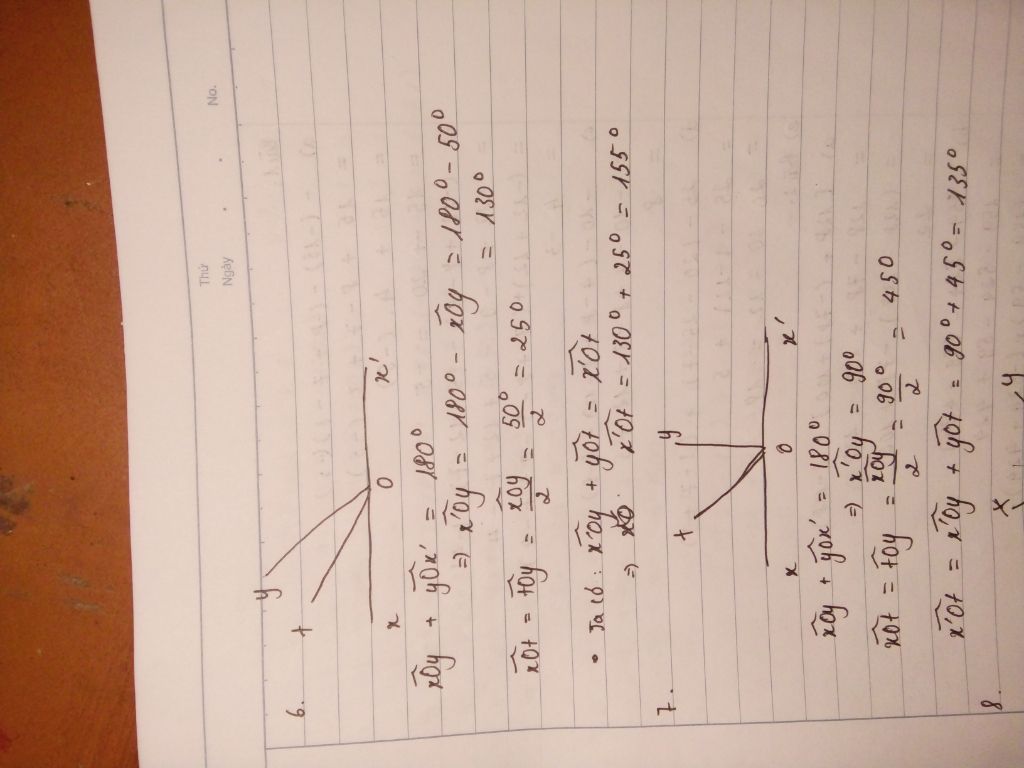 Thứ
Ngày
No.
6.
y
t
x
O
x'
xOy + yOx' = 180°
=> x'Oy = 180° - xOy = 180° - 50°
= 130°
xOt = tOy = xOy/2 = 50°/2 = 25°
• Ta có: x'Oy + yOt = x'Ot
=> x'Ot = 130° + 25° = 155°
7.
t
y
x
O
x'
xOy + yOx' = 180°
=> x'Oy = 90°
xOt = tOy = xOy/2 = 90°/2 = 45°
x'Ot = x'Oy + yOt = 90° + 45° = 135°
8.
x
y